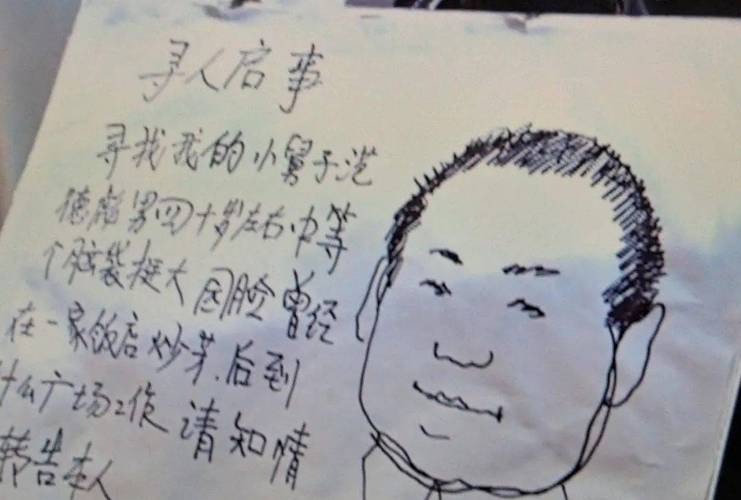 寻人启事
寻找我的小舅子范
德彪男四十岁左右中等
个脑袋挺大圆脸曾经
在一家饭店炒芽.后到
什么广场工作请知情
转告本人